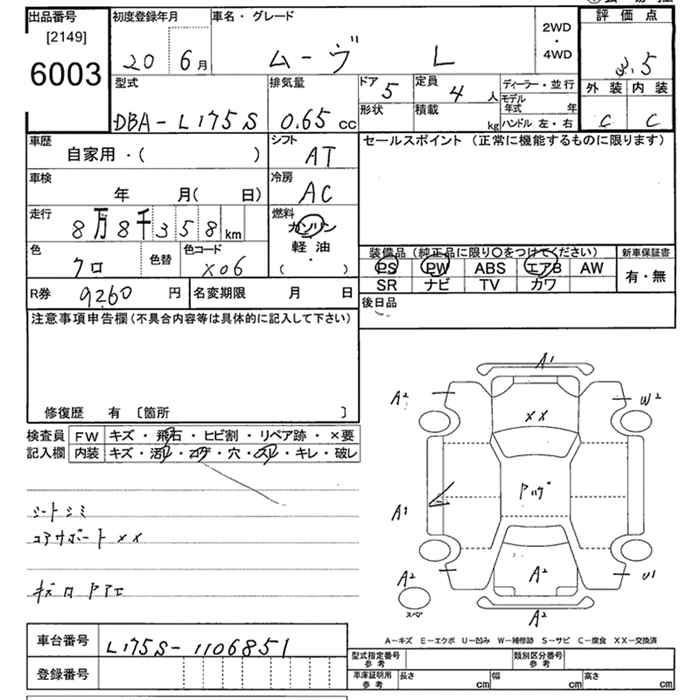 出品番号
[2149]
6003
初度登録年月
20 6月
車名・グレード
ムーヴ L
2WD
・
4WD
評価点
3.5
外装 内装
C C
型式
DBA-L175S
排気量
0.65 cc
ドア 5
定員 4 人
形状
積載 kg
ディーラー・並行
モデル年式 年
ハンドル 左・右
車歴
自家用・( )
シフト
AT
セールスポイント (正常に機能するものに限ります)
車検
年 月( 日)
冷房
AC
走行
8万8千358km
燃料
ガソリン
軽油
( ・ )
色
クロ
色替
色コード
X06
装備品 (純正品に限り〇をつけてください)
新車保証書
PS PW ABS エアB AW
有・無
SR ナビ TV カワ
R券 9260 円
名変期限 月 日
後日品
注意事項申告欄 (不具合内容等は具体的に記入して下さい)
修復歴 有 [箇所 ]
検査員
記入欄
FW キズ・飛石・ヒビ割・リペア跡・×要
内装 キズ・汚レ・コゲ・穴・スレ・キレ・破レ
シートシミ
コアサポート××
A1
A2
W2
××
A1
A2
A2
U1
スペア
A2
A-キズ E-エクボ U-凹み W-補修跡 S-サビ C-腐食 XX-交換済
車台番号 L175S-1106851
登録番号
型式指定番号 参考
類別区分番号 参考
車庫証明用 参考
長さ cm 幅 cm 高さ cm